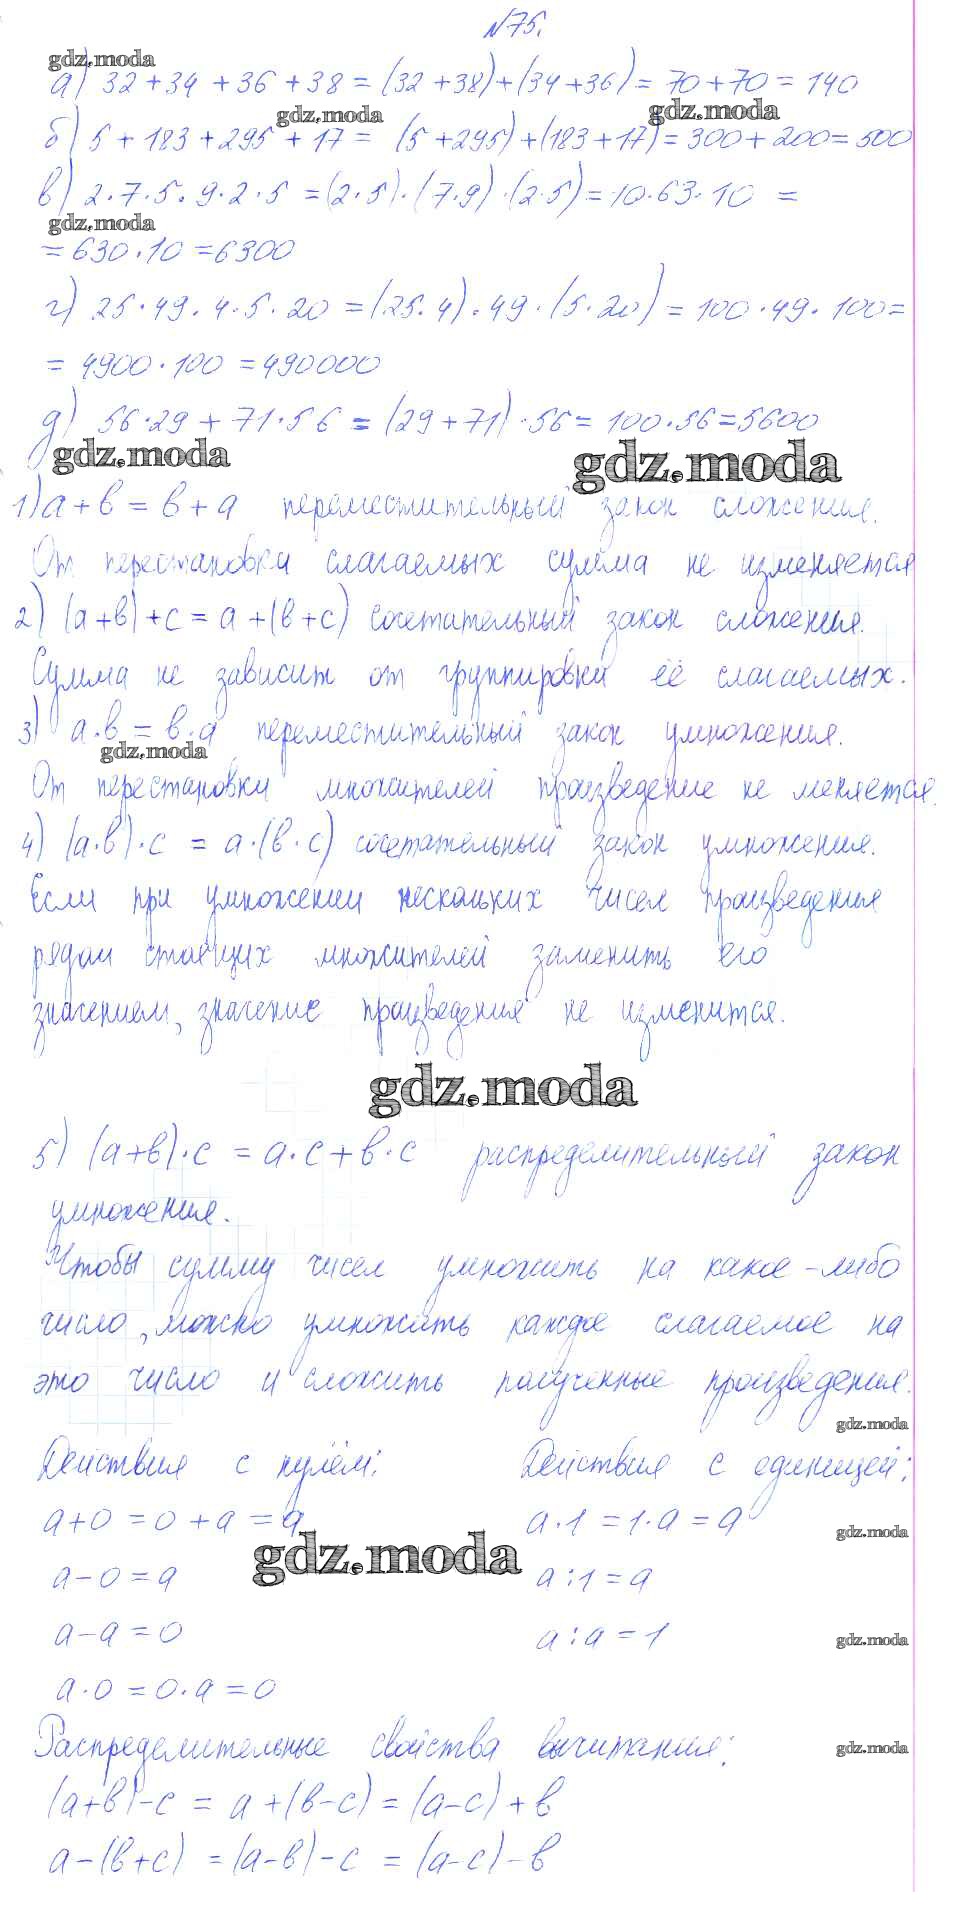 №75.
gdz.moda
а) 32+34+36+38=(32+38)+(34+36)=70+70=140
gdz.moda gdz.moda
б) 5+183+295+17= (5+295)+(183+17)=300+200=500
в) 2·7·5·9·2·5=(2·5)·(7·9)·(2·5)=10·63·10 =
gdz.moda
=630·10=6300
г) 25·49·4·5·20=(25·4)·49·(5·20)=100·49·100=
= 4900·100=490000
д) 56·29+71·56=(29+71)·56=100·56=5600
gdz.moda gdz.moda
1) а+в=в+а переместительный закон сложения.
От перестановки слагаемых сумма не изменяется
2) (а+в)+с=а+(в+с) сочетательный закон сложения.
Сумма не зависит от группировки её слагаемых.
3) а·в=в·а переместительный закон умножения.
gdz.moda
От перестановки множителей произведение не меняется.
4) (а·в)·с = а·(в·с) сочетательный закон умножения.
Если при умножении нескольких чисел произведения
рядом стоящих множителей заменить его
значением, значение произведения не изменится.
gdz.moda
5) (а+в)·с = а·с+в·с распределительный закон
умножения.
Чтобы сумму чисел умножить на какое-либо
число, можно умножать каждое слагаемое на
это число и сложить полученные произведения.
gdz.moda
Действия с нулём: Действия с единицей:
а+0=0+а=а а·1=1·а=а
gdz.moda gdz.moda
а-0=а а:1=а
а-а=0 а:а=1
gdz.moda
а·0=0·а=0
Распределительные свойства вычитания:
gdz.moda
(а+в)-с = а+(в-с)=(а-с)+в
а-(в+с) =(а-в)-с = (а-с)-в